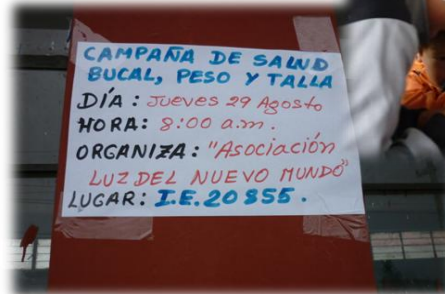 CAMPAÑA DE SALUD
BUCAL, PESO Y TALLA
DÍA: Jueves 29 Agosto
HORA: 8:00 a.m.
ORGANIZA: "Asociación
LUZ DEL NUEVO MUNDO"
LUGAR: I.E. 20855.